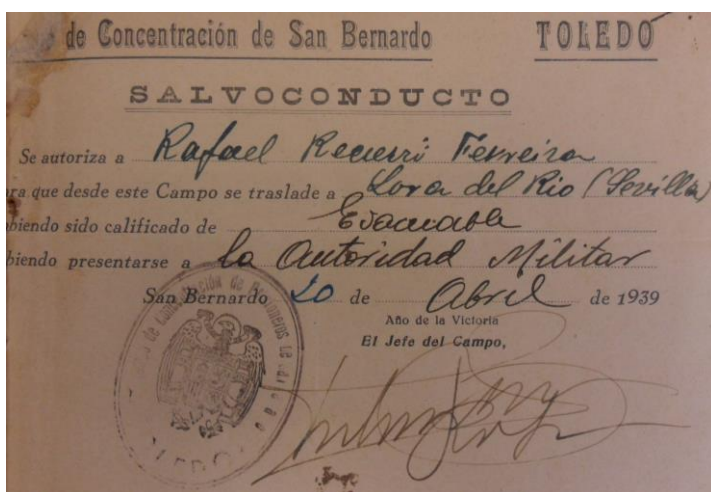 de Concentración de San Bernardo TOLEDO
SALVOCONDUCTO
Se autoriza a Rafael Ferreira
ara que desde este Campo se traslade a Lora del Rio (Sevilla)
biendo sido calificado de Evacuable
biendo presentarse a la Autoridad Militar
San Bernardo 20 de Abril de 1939
Año de la Victoria
El Jefe del Campo,
de Concentración de Prisioneros